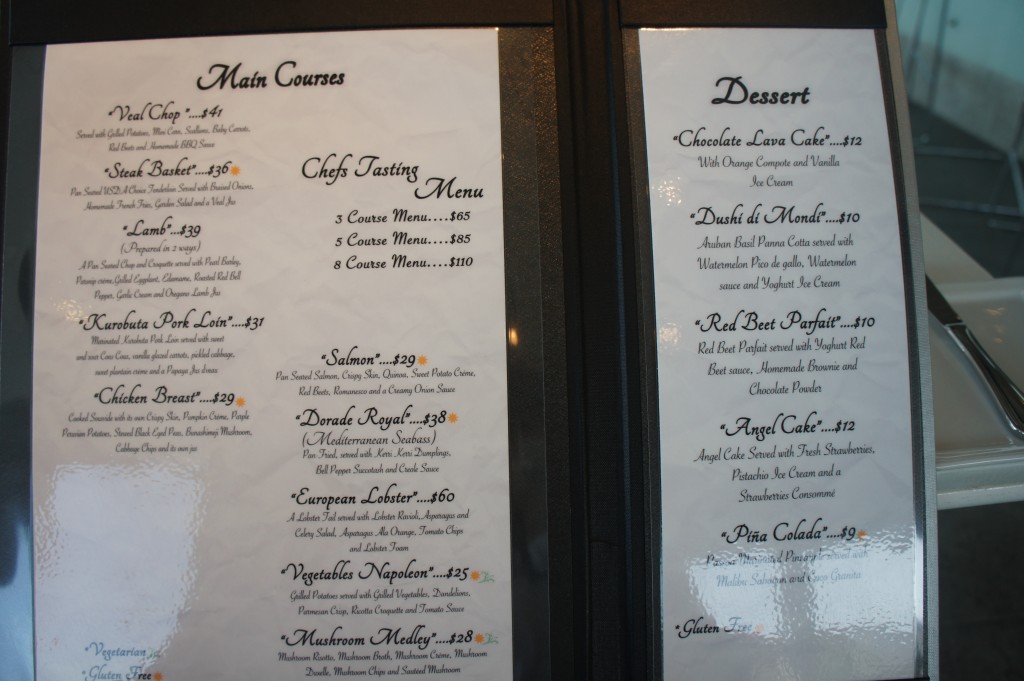 Main Courses
"Veal Chop"...$41
Served with Grilled Potatoes, Mini Corn, Scallions, Baby Carrots,
Red Beets and Homemade BBQ Sauce
"Steak Basket"....$36
Pan Seared USDA Choice Tenderloin Served with Braised Onions,
Homemade French Fries, Garden Salad and a Veal Jus
"Lamb"...$39
(Prepared in 2 ways)
A Pan Seared Chop and Croquette served with Pearl Barley,
Parsnip crème, Grilled Eggplant, Edamame, Roasted Red Bell
Pepper, Garlic Cream and Oregano Lamb Jus
"Kurobuta Pork Loin"....$31
Marinated Kurobuta Pork Loin served with sweet
and sour Cous Cous, vanilla glazed carrots, pickled cabbage,
sweet plantain crème and a Papaya Jus
"Chicken Breast"....$29
Cooked Sousvide with its own Crispy Skin, Pumpkin Crème, Purple
Peruvian Potatoes, Stewed Black Eyed Peas, Bunashimeji Mushroom,
Cabbage Chips and its own jus
"Vegetarian
"Gluten Free
Chefs Tasting
Menu
3 Course Menu....$65
5 Course Menu....$85
8 Course Menu....$110
"Salmon"....$29
Pan Seared Salmon, Crispy Skin, Quinoa, Sweet Potato Crème,
Red Beets, Romanesco and a Creamy Onion Sauce
"Dorade Royal"....$38
(Mediterranean Seabass)
Pan Fried, served with Kerri Kerri Dumplings,
Bell Pepper Succotash and Creole Sauce
"European Lobster"....$60
A Lobster Tail served with Lobster Ravioli, Asparagus and
Celery Salad, Asparagus Ala Orange, Tomato Chips
and Lobster Foam
"Vegetables Napoleon"....$25
Grilled Potatoes served with Grilled Vegetables, Dandelions,
Parmesan Crisp, Ricotta Croquette and Tomato Sauce
"Mushroom Medley"....$28
Mushroom Risotto, Mushroom Broth, Mushroom Crème, Mushroom
Duxelle, Mushroom Chips and Sauteed Mushroom
Dessert
"Chocolate Lava Cake"....$12
With Orange Compote and Vanilla
Ice Cream
"Dushi di Mondi"....$10
Aruban Basil Panna Cotta served with
Watermelon Pico de gallo, Watermelon
sauce and Yoghurt Ice Cream
"Red Beet Parfait"....$10
Red Beet Parfait served with Yoghurt Red
Beet sauce, Homemade Brownie and
Chocolate Powder
"Angel Cake"....$12
Angel Cake Served with Fresh Strawberries,
Pistachio Ice Cream and a
Strawberries Consommé
"Piña Colada"....$9
Marinated Pineapple served with
Malibu Sabayon and Coco Granita
"Gluten Free